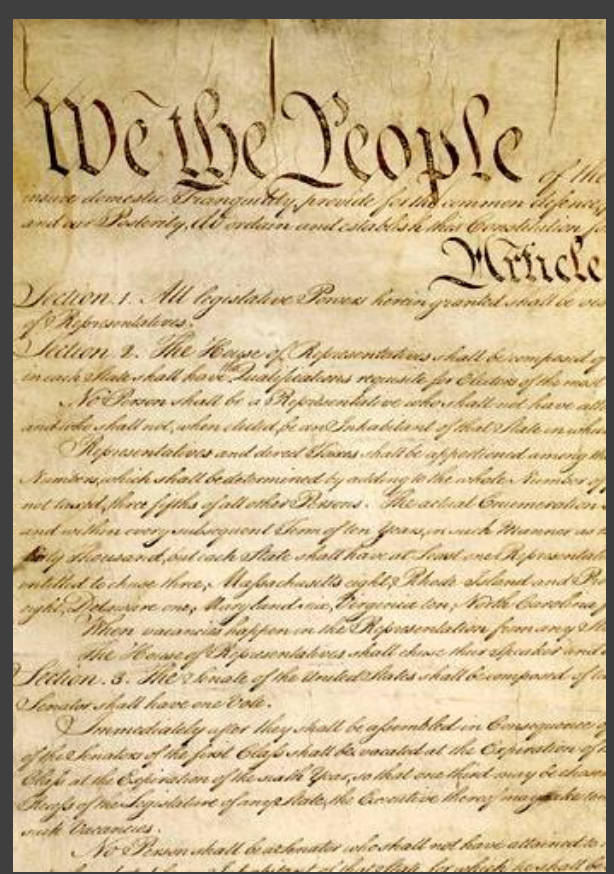 We the People of the
insure domestic Tranquility, provide for the common defence,
and our Posterity, do ordain and establish this Constitution for
Article
Section. 1. All legislative Powers herein granted shall be ves
of Representatives.
Section. 2. The House of Representatives shall be composed of
in each State shall have the Qualifications requisite for Electors of the most
No Person shall be a Representative who shall not have atta
and who shall not, when elected, be an Inhabitant of that State in which
Representatives and direct Taxes shall be apportioned among the
Numbers, which shall be determined by adding to the whole Number of
not taxed, three fifths of all other Persons. The actual Enumeration
and within every subsequent Term of ten Years, in such Manner as
thirty Thousand, but each State shall have at Least one Representative
entitled to chuse three, Massachusetts eight, Rhode Island and Pro
eight, Delaware one, Maryland six, Virginia ten, North Carolina
When vacancies happen in the Representation from any Sta
The House of Representatives shall chuse their Speaker and
Section. 3. The Senate of the United States shall be composed of
Senator shall have one Vote.
Immediately after they shall be assembled in Consequence of
of the Senators of the first Class shall be vacated at the Expiration of
Class at the Expiration of the sixth Year, so that one third may be chosen
Recess of the Legislature of any State, the Executive thereof may make
such Vacancies.
No Person shall be a Senator who shall not have attained to
Inhabitant of that State for which he shall be